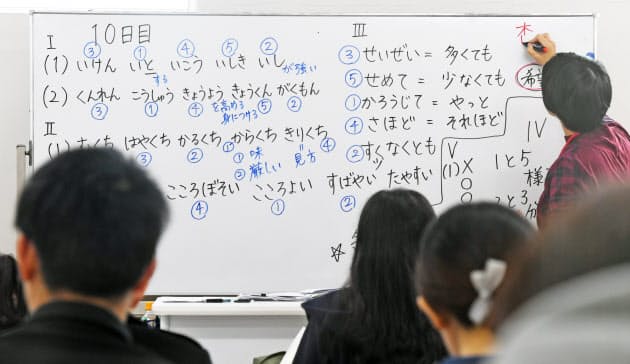 10日目
Ⅰ
③ ① ④ ⑤ ②
(1) いけん いと いこう いしき いし
する が強い
(2) くんれん こうしゅう きょうよう きょうくん がくもん
③ ① ④ を高める 身につける ⑤ ②
Ⅱ
はやくち かるくち からくち きりくち
③ ② ① ④
①味 見方
②厳しい
こころぼそい こころよい すばやい たやすい
④ ① ②
Ⅲ
③せいぜい = 多くても
⑤せめて = 少なくても
①かろうじて = やっと
④さほど = それほど
②すくなくとも
少
Ⅳ
1と5
様
Ⅴ
(1) X
O
O
と3
木
希
☆